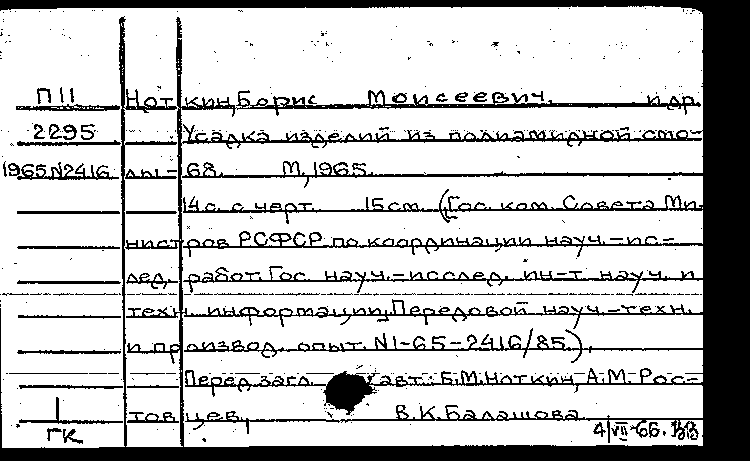 П11 Ноткин, Борис Моисеевич. и др.
2295 Усадка изделий из полиамидной смо-
1965 N2416 лы - 68. М, 1965.
14 с. с черт. 15 см. (Гос. ком. Совета Ми-
нистров РСФСР по координации науч.-ис-
след. работ. Гос. науч.-исслед. ин-т науч. и
техн. информации. Передовой науч.-техн.
и производ. опыт. N1-65-2416/85.).
Перед загл. авт.: Б.М. Ноткин, А.М. Рос-
товцев, В.К. Балашова
1
ГК
4/VII-66.